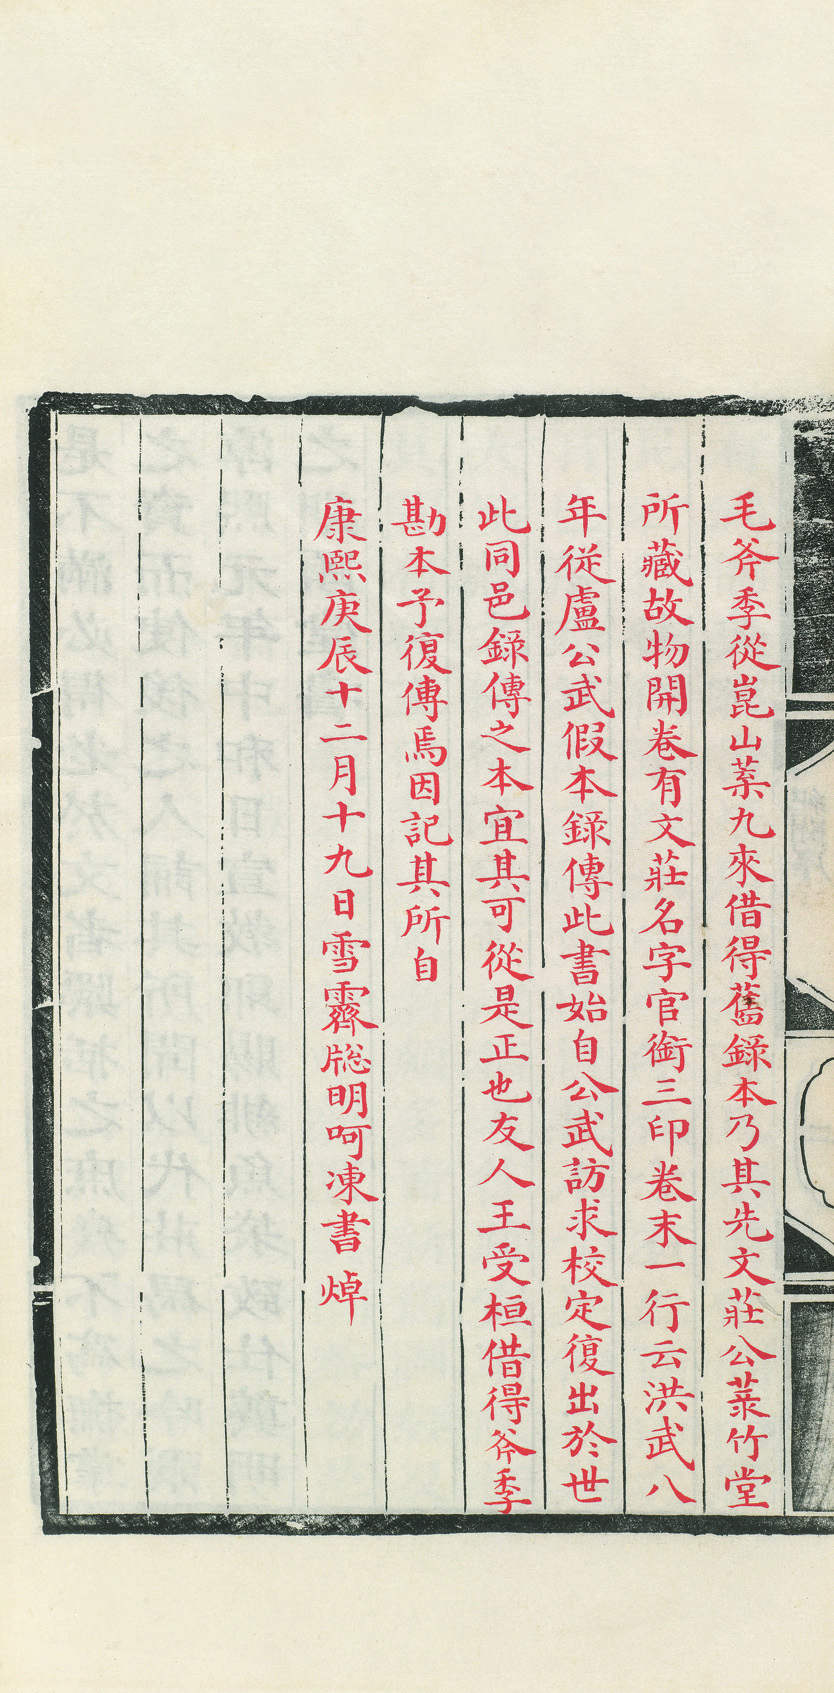 毛斧季從崑山葉九來借得舊錄本乃其先文莊公菉竹堂
所藏故物開卷有文莊名字官銜三印卷末一行云洪武八
年從盧公武假本錄傳此書始自公武訪求校定復出於世
此同邑錄傳之本宜其可從是正也友人王受桓借得斧季
勘本予復傳焉因記其所自
康熙庚辰十二月十九日雪霽牕明呵凍書 焯